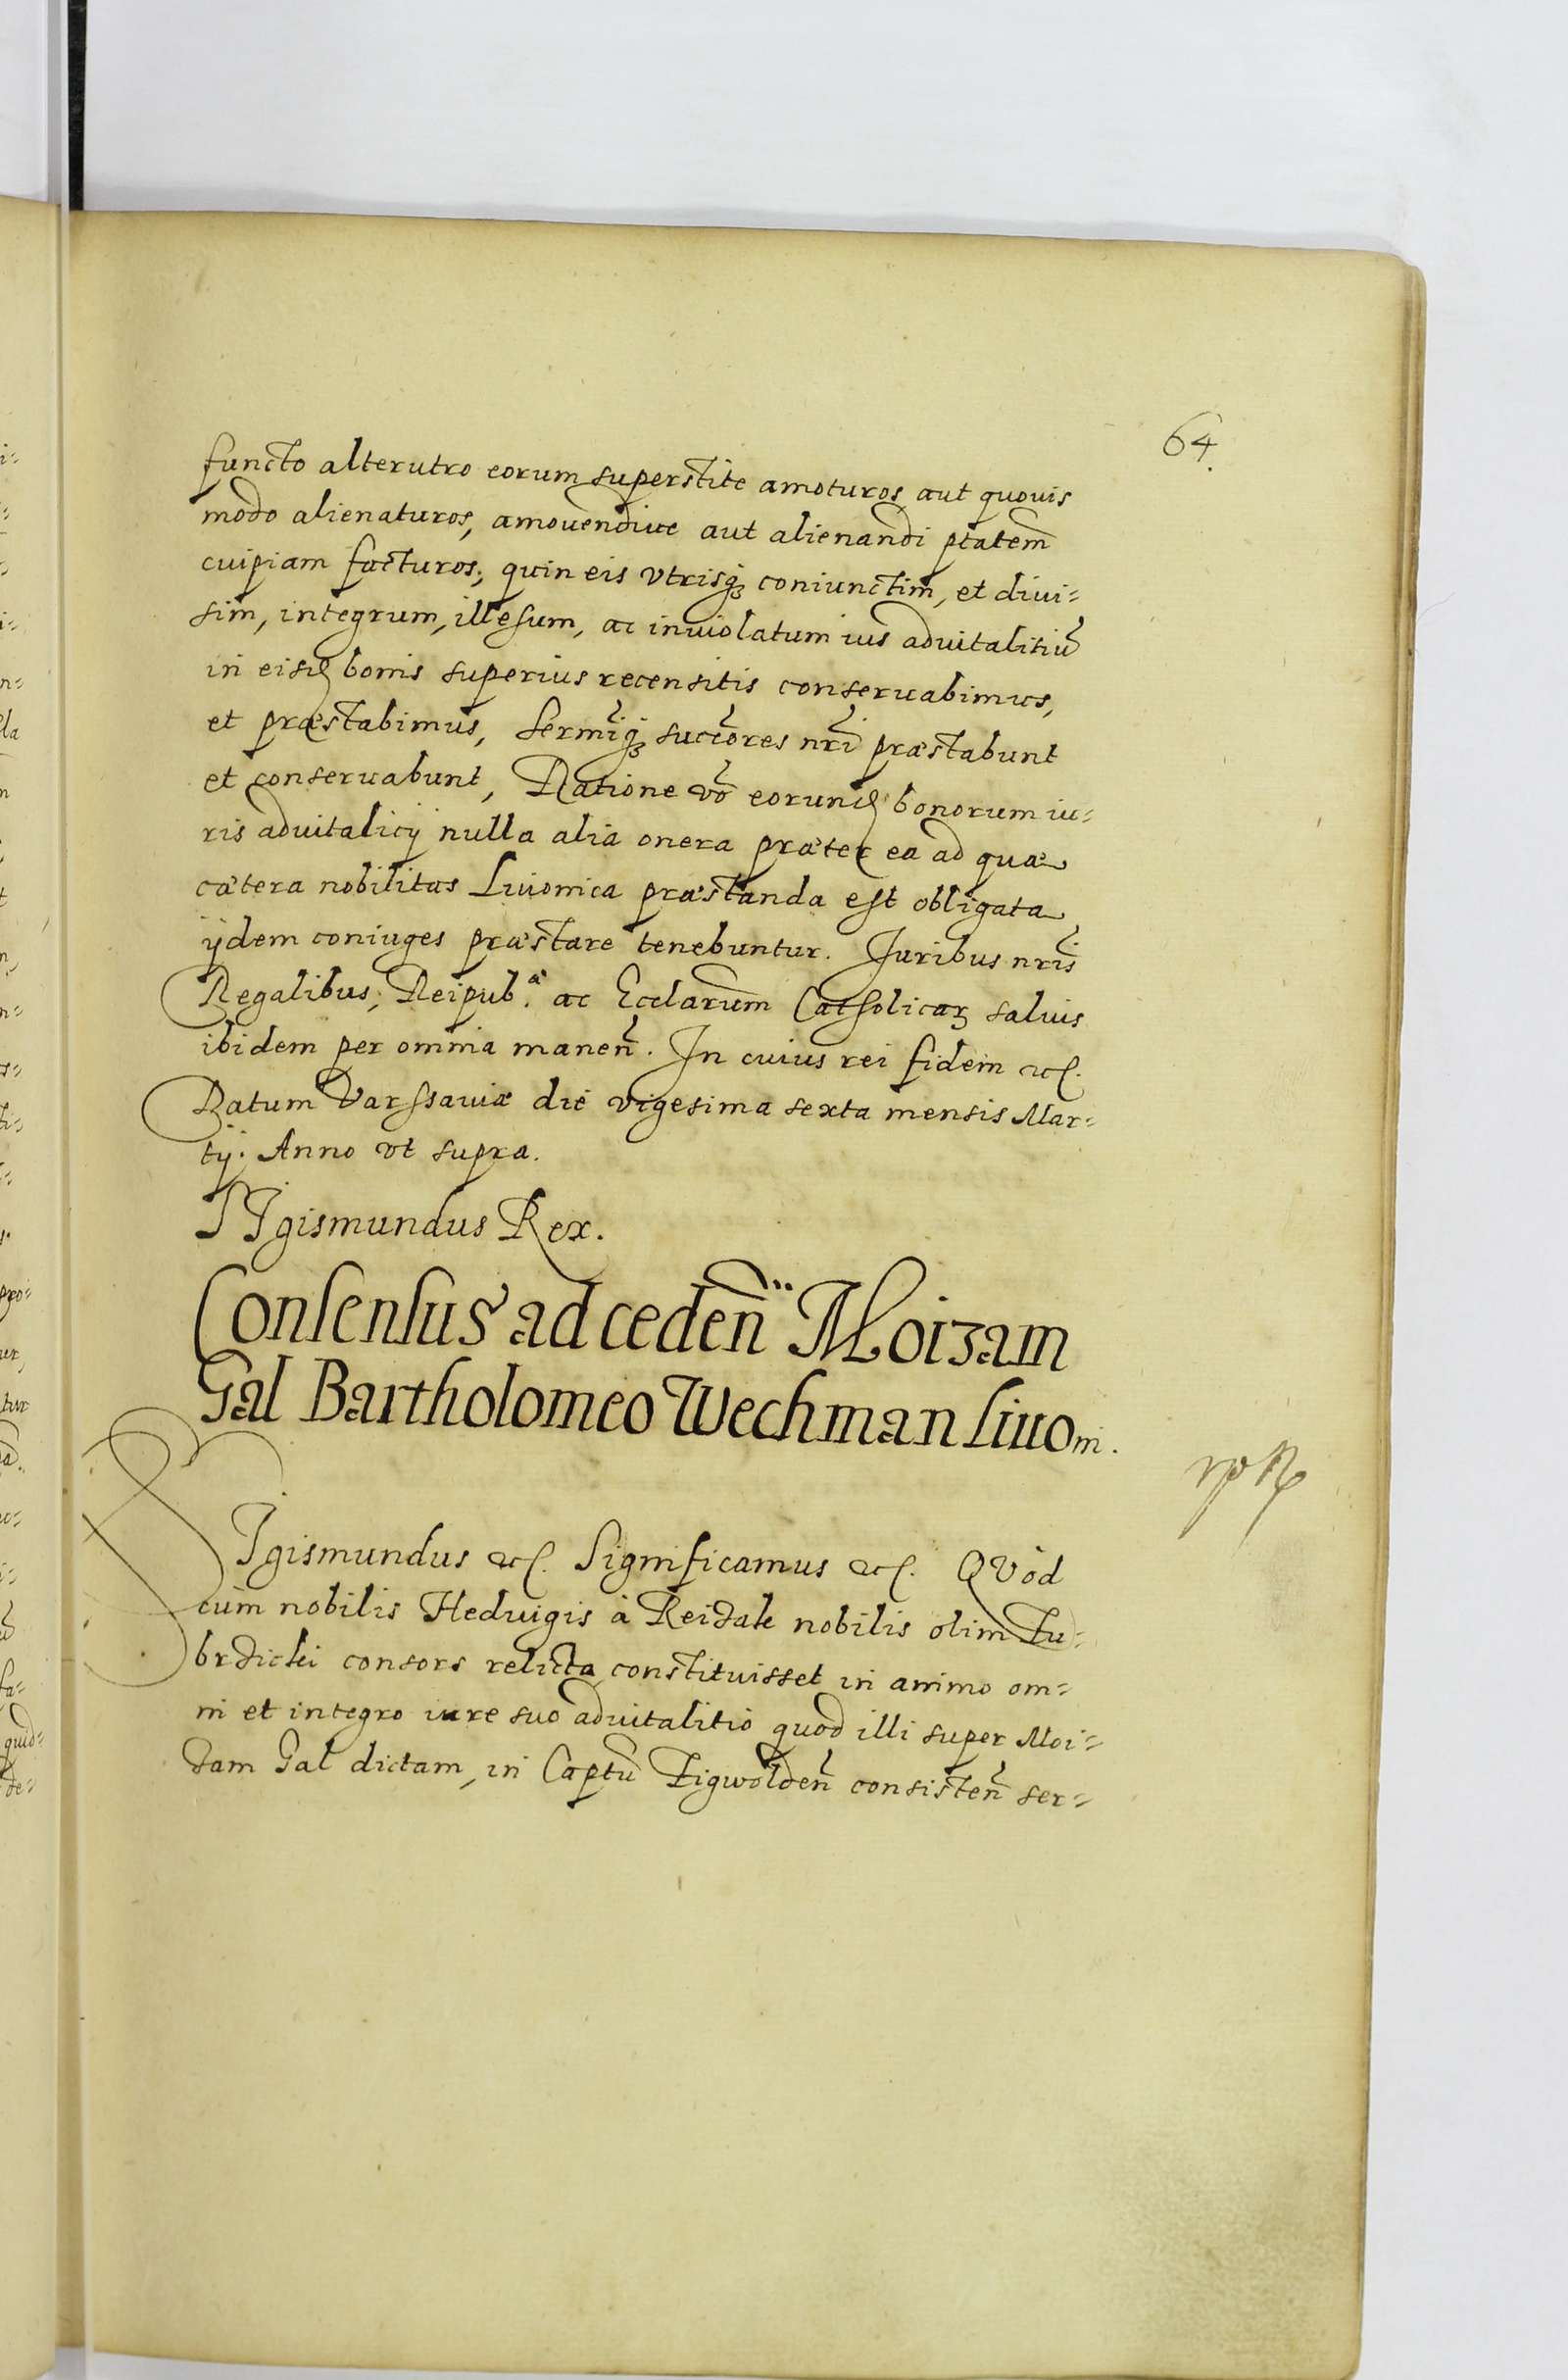 64.
functo alterutro eorum superstite amoturos aut quouis
modo alienaturos, amouendiue aut alienandi ptatem
cuipiam facturos, quin eis vtrisq3 coniunctim, et diui=
sim, integrum, illesum, ac inuiolatum ius aduitalitiu
in eisd bonis superius recensitis conseruabimus,
et præstabimus, Sermiq3 succores nri præstabunt
et conseruabunt, Ratione vo eorund bonorum iu=
ris aduitalicij nulla alia onera præter ea ad quæ
cætera nobilitas Liuonica præstanda est obligata
ijdem coniuges præstare tenebuntur. Juribus nris
Regalibus, Reipub.ᵃ ac Ecclarum Catholicar saluis
ibidem per omnia manen. In cuius rei fidem etc.
Datum Varssauiæ die vigesima sexta mensis Mar=
tij. Anno vt supra.
SIgismundus Rex.
Consensus ad ceden Moizam
Gal Bartholomeo Wechman Liuon.
SIgismundus etc. Significamus etc. QVòd
cùm nobilis Heduigis à Reizale nobilis olim
consors relicta constituisset in animo om=
ni et integro iure suo aduitalitio quod illi super Moi=
zam Gal dictam, in Captu Zigwolden consisten ser=